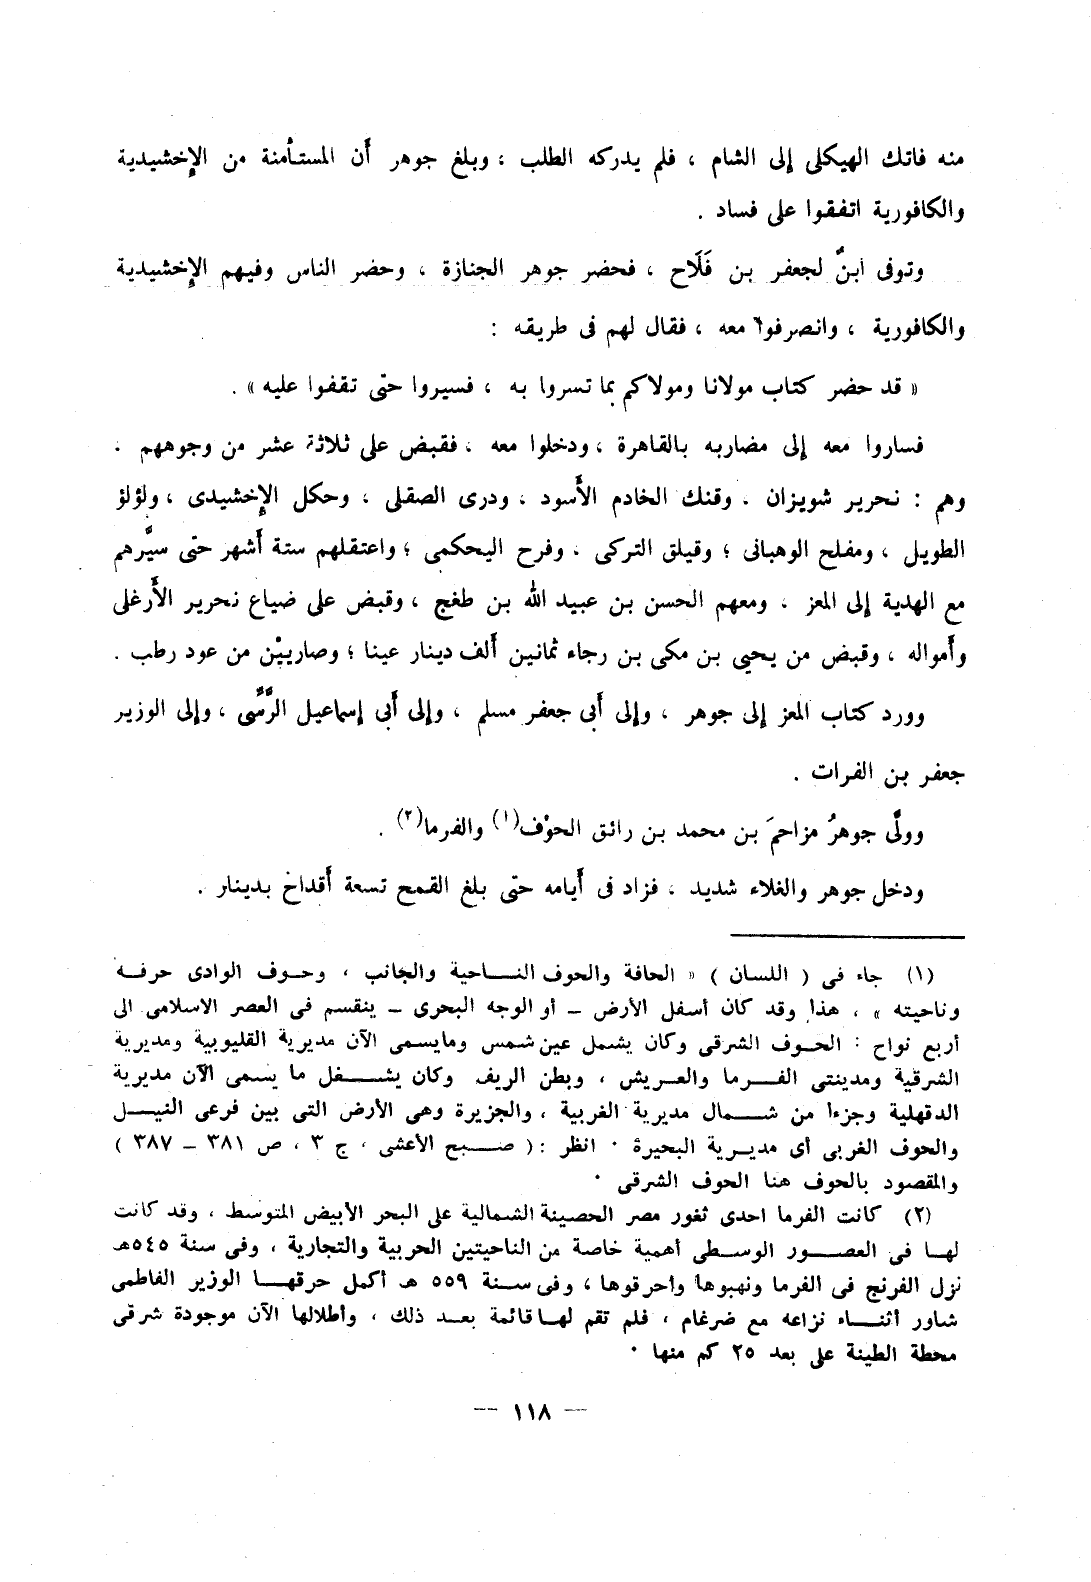 منه فاتك الهيكلى إلى الشام ، فلم يدركه الطلب ، وبلغ جوهر أَن المستأْمنة من الإِخشيدية
والكافورية اتفقوا على فساد .
وتوفى ابنٌ لجعفر بن فَلَاح ، فحضر جوهر الجنازة ، وحضر الناس وفيهم الإِخشيدية
والكافورية ، وانصرفوا معه ، فقال لهم فى طريقه :
« قد حضر كتاب مولانا ومولاكم بما تسروا به ، فسيروا حتّى تقفوا عليه » .
فساروا معه إلى مضاربه بالقاهرة ، ودخلوا معه ، فقبض على ثلاثة عشر من وجوههم .
وهم : نحرير شويزان . وقنك الخادم الأَسود ، ودرى الصقلى ، وحكل الإِخشيدى ، ولؤلؤ
الطويل ، ومفلح الوهبانى ؛ وقيلق التركى . وفرح اليحكمى ؛ واعتقلهم ستة أَشهر حتى سيَّرهم
مع الهدية إلى المعز ، ومعهم الحسن بن عبيد الله بن طغج ، وقبض على ضياع نحرير الأَرغلى
وأَمواله ، وقبض من يحيى بن مكى بن رجاء ثمانين أَلف دينار عينا ؛ وصاريَيْن من عود رطب .
وورد كتاب المعز إلى جوهر ، وإلى أَبى جعفر مسلم ، وإلى أَبى إسماعيل الرَّسِّى ، وإلى الوزير
جعفر بن الفرات .
وولَّى جوهرُ مزاحمَ بن محمد بن رائق الحوْف(١) والفرما(٢) .
ودخل جوهر والغلاء شديد ، فزاد فى أَيامه حتى بلغ القمح تسعة أَقداح بدينار .
(١) جاء فى ( اللسان ) « الحافة والحوف الناحية والجانب ، وحوف الوادى حرفه
وناحيته » ، هذا وقد كان أسفل الأرض – أو الوجه البحرى – ينقسم فى العصر الاسلامى الى
أربع نواح : الحوف الشرقى وكان يشمل عين شمس ومايسمى الآن مديرية القليوبية ومديرية
الشرقية ومدينتى الفرما والعريش ، وبطن الريف وكان يشغل ما يسمى الآن مديرية
الدقهلية وجزءا من شمال مديرية الغربية ، والجزيرة وهى الأرض التى بين فرعى النيل
والحوف الغربى أى مديرية البحيرة . انظر : ( صبح الأعشى ، ج ٣ ، ص ٣٨١ – ٣٨٧ )
والمقصود بالحوف هنا الحوف الشرقى .
(٢) كانت الفرما احدى ثغور مصر الحصينة الشمالية على البحر الأبيض المتوسط ، وقد كانت
لها فى العصور الوسطى أهمية خاصة من الناحيتين الحربية والتجارية ، وفى سنة ٥٤٥هـ
نزل الفرنج فى الفرما ونهبوها وأحرقوها ، وفى سنة ٥٥٩ هـ أكمل حرقها الوزير الفاطمى
شاور أثناء نزاعه مع ضرغام ، فلم تقم لها قائمة بعد ذلك ، وأطلالها الآن موجودة شرقى
محطة الطينة على بعد ٢٥ كم منها .
— ١١٨ —